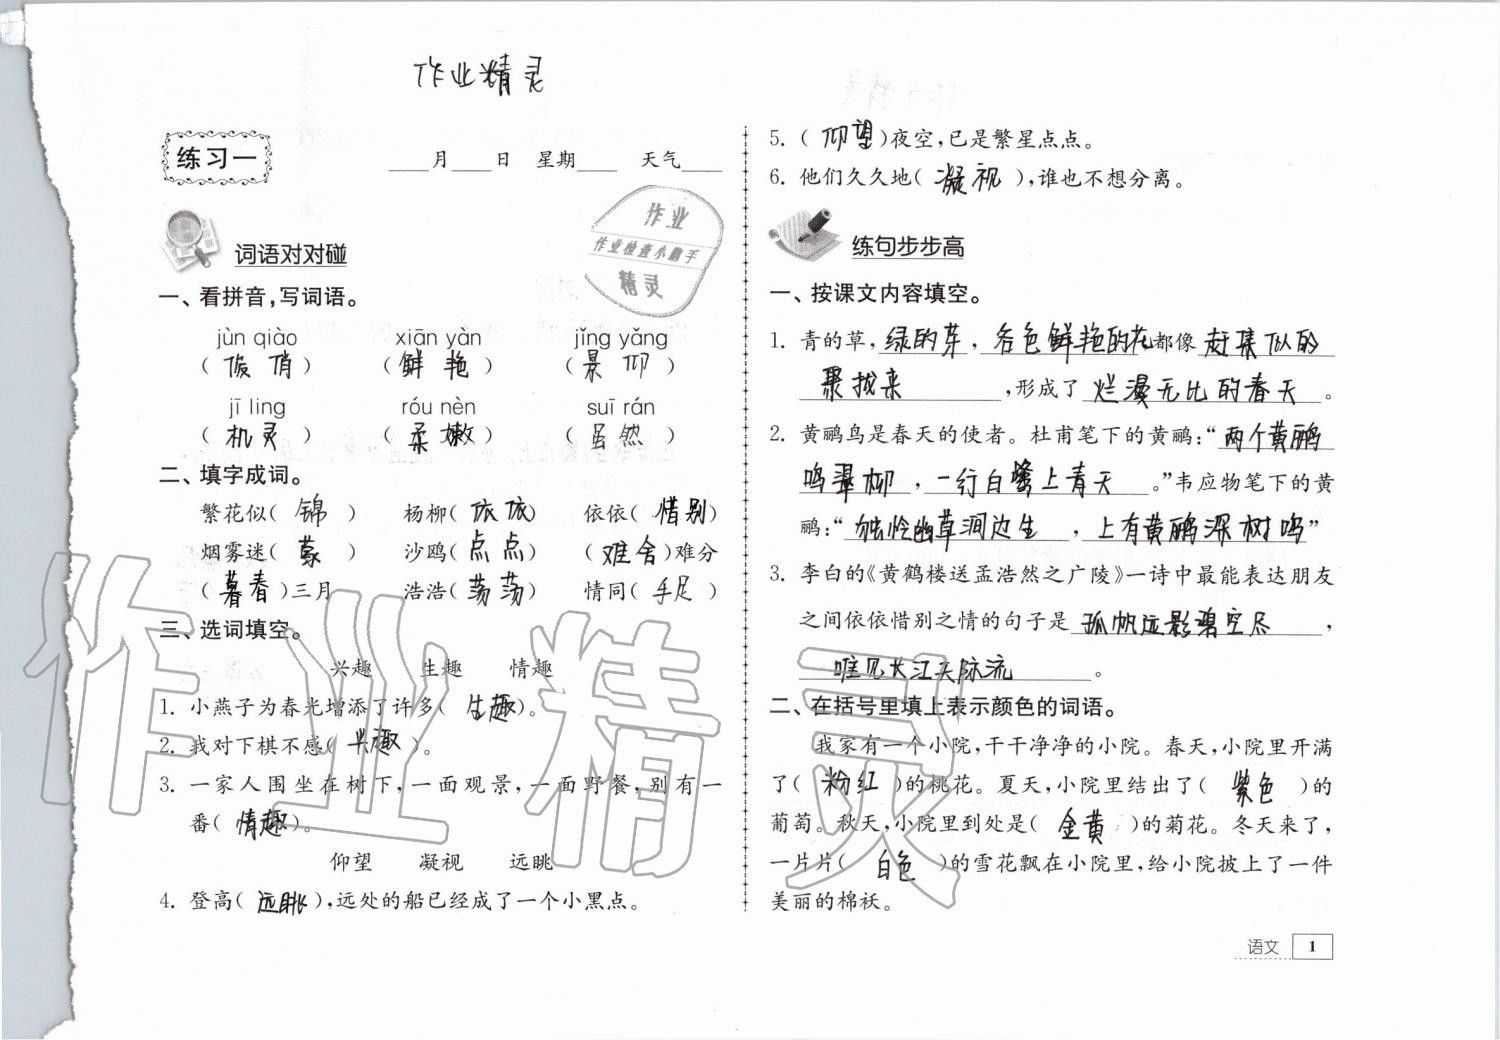 作业精灵
练习一
月 日 星期 天气
作业
作业检查小帮手
精灵
词语对对碰
一、看拼音,写词语。
jùn qiào xiān yàn jǐng yǎng
( 俊 俏 ) ( 鲜 艳 ) ( 景 仰 )
jī ling róu nèn suī rán
( 机 灵 ) ( 柔 嫩 ) ( 虽 然 )
二、填字成词。
繁花似( 锦 ) 杨柳( 依依 ) 依依( 惜别 )
烟雾迷( 蒙 ) 沙鸥( 点点 ) ( 难舍 )难分
( 暮春 )三月 浩浩( 荡荡 ) 情同( 手足 )
三、选词填空。
兴趣 生趣 情趣
1. 小燕子为春光增添了许多( 生趣 )。
2. 我对下棋不感( 兴趣 )。
3. 一家人围坐在树下,一面观景,一面野餐,别有一
番( 情趣 )。
仰望 凝视 远眺
4. 登高( 远眺 ),远处的船已经成了一个小黑点。
5. ( 仰望 )夜空,已是繁星点点。
6. 他们久久地( 凝视 ),谁也不想分离。
练句步步高
一、按课文内容填空。
1. 青的草, 绿的芽 , 各色鲜艳的花都像 赶集似的
聚拢来 ,形成了 烂漫无比的春天 。
2. 黄鹂鸟是春天的使者。杜甫笔下的黄鹂:“ 两个黄鹂
鸣翠柳 , 一行白鹭上青天 。”韦应物笔下的黄
鹂:“ 独怜幽草涧边生 , 上有黄鹂深树鸣 ”
3. 李白的《黄鹤楼送孟浩然之广陵》一诗中最能表达朋友
之间依依惜别之情的句子是 孤帆远影碧空尽 ,
唯见长江天际流 。
二、在括号里填上表示颜色的词语。
我家有一个小院,干干净净的小院。春天,小院里开满
了( 粉红 )的桃花。夏天,小院里结出了( 紫色 )的
葡萄。秋天,小院里到处是( 金黄 )的菊花。冬天来了,
一片片( 白色 )的雪花飘在小院里,给小院披上了一件
美丽的棉袄。
语文 1
作业精灵